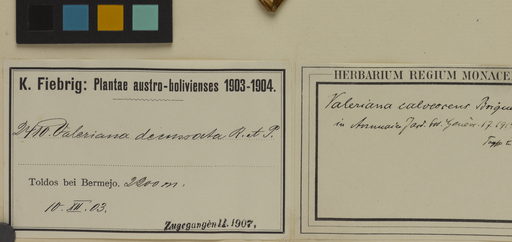 K. Fiebrig: Plantae austro-bolivienses 1903-1904.
Valeriana decussata R. et P.
Toldos bei Bermejo. 2200 m.
10. XII. 03.
Zugegangen 11. 1907.
HERBARIUM REGIUM MONACE
Valeriana Briqu
in Annuaire Jard. bot. Genèv. 17.